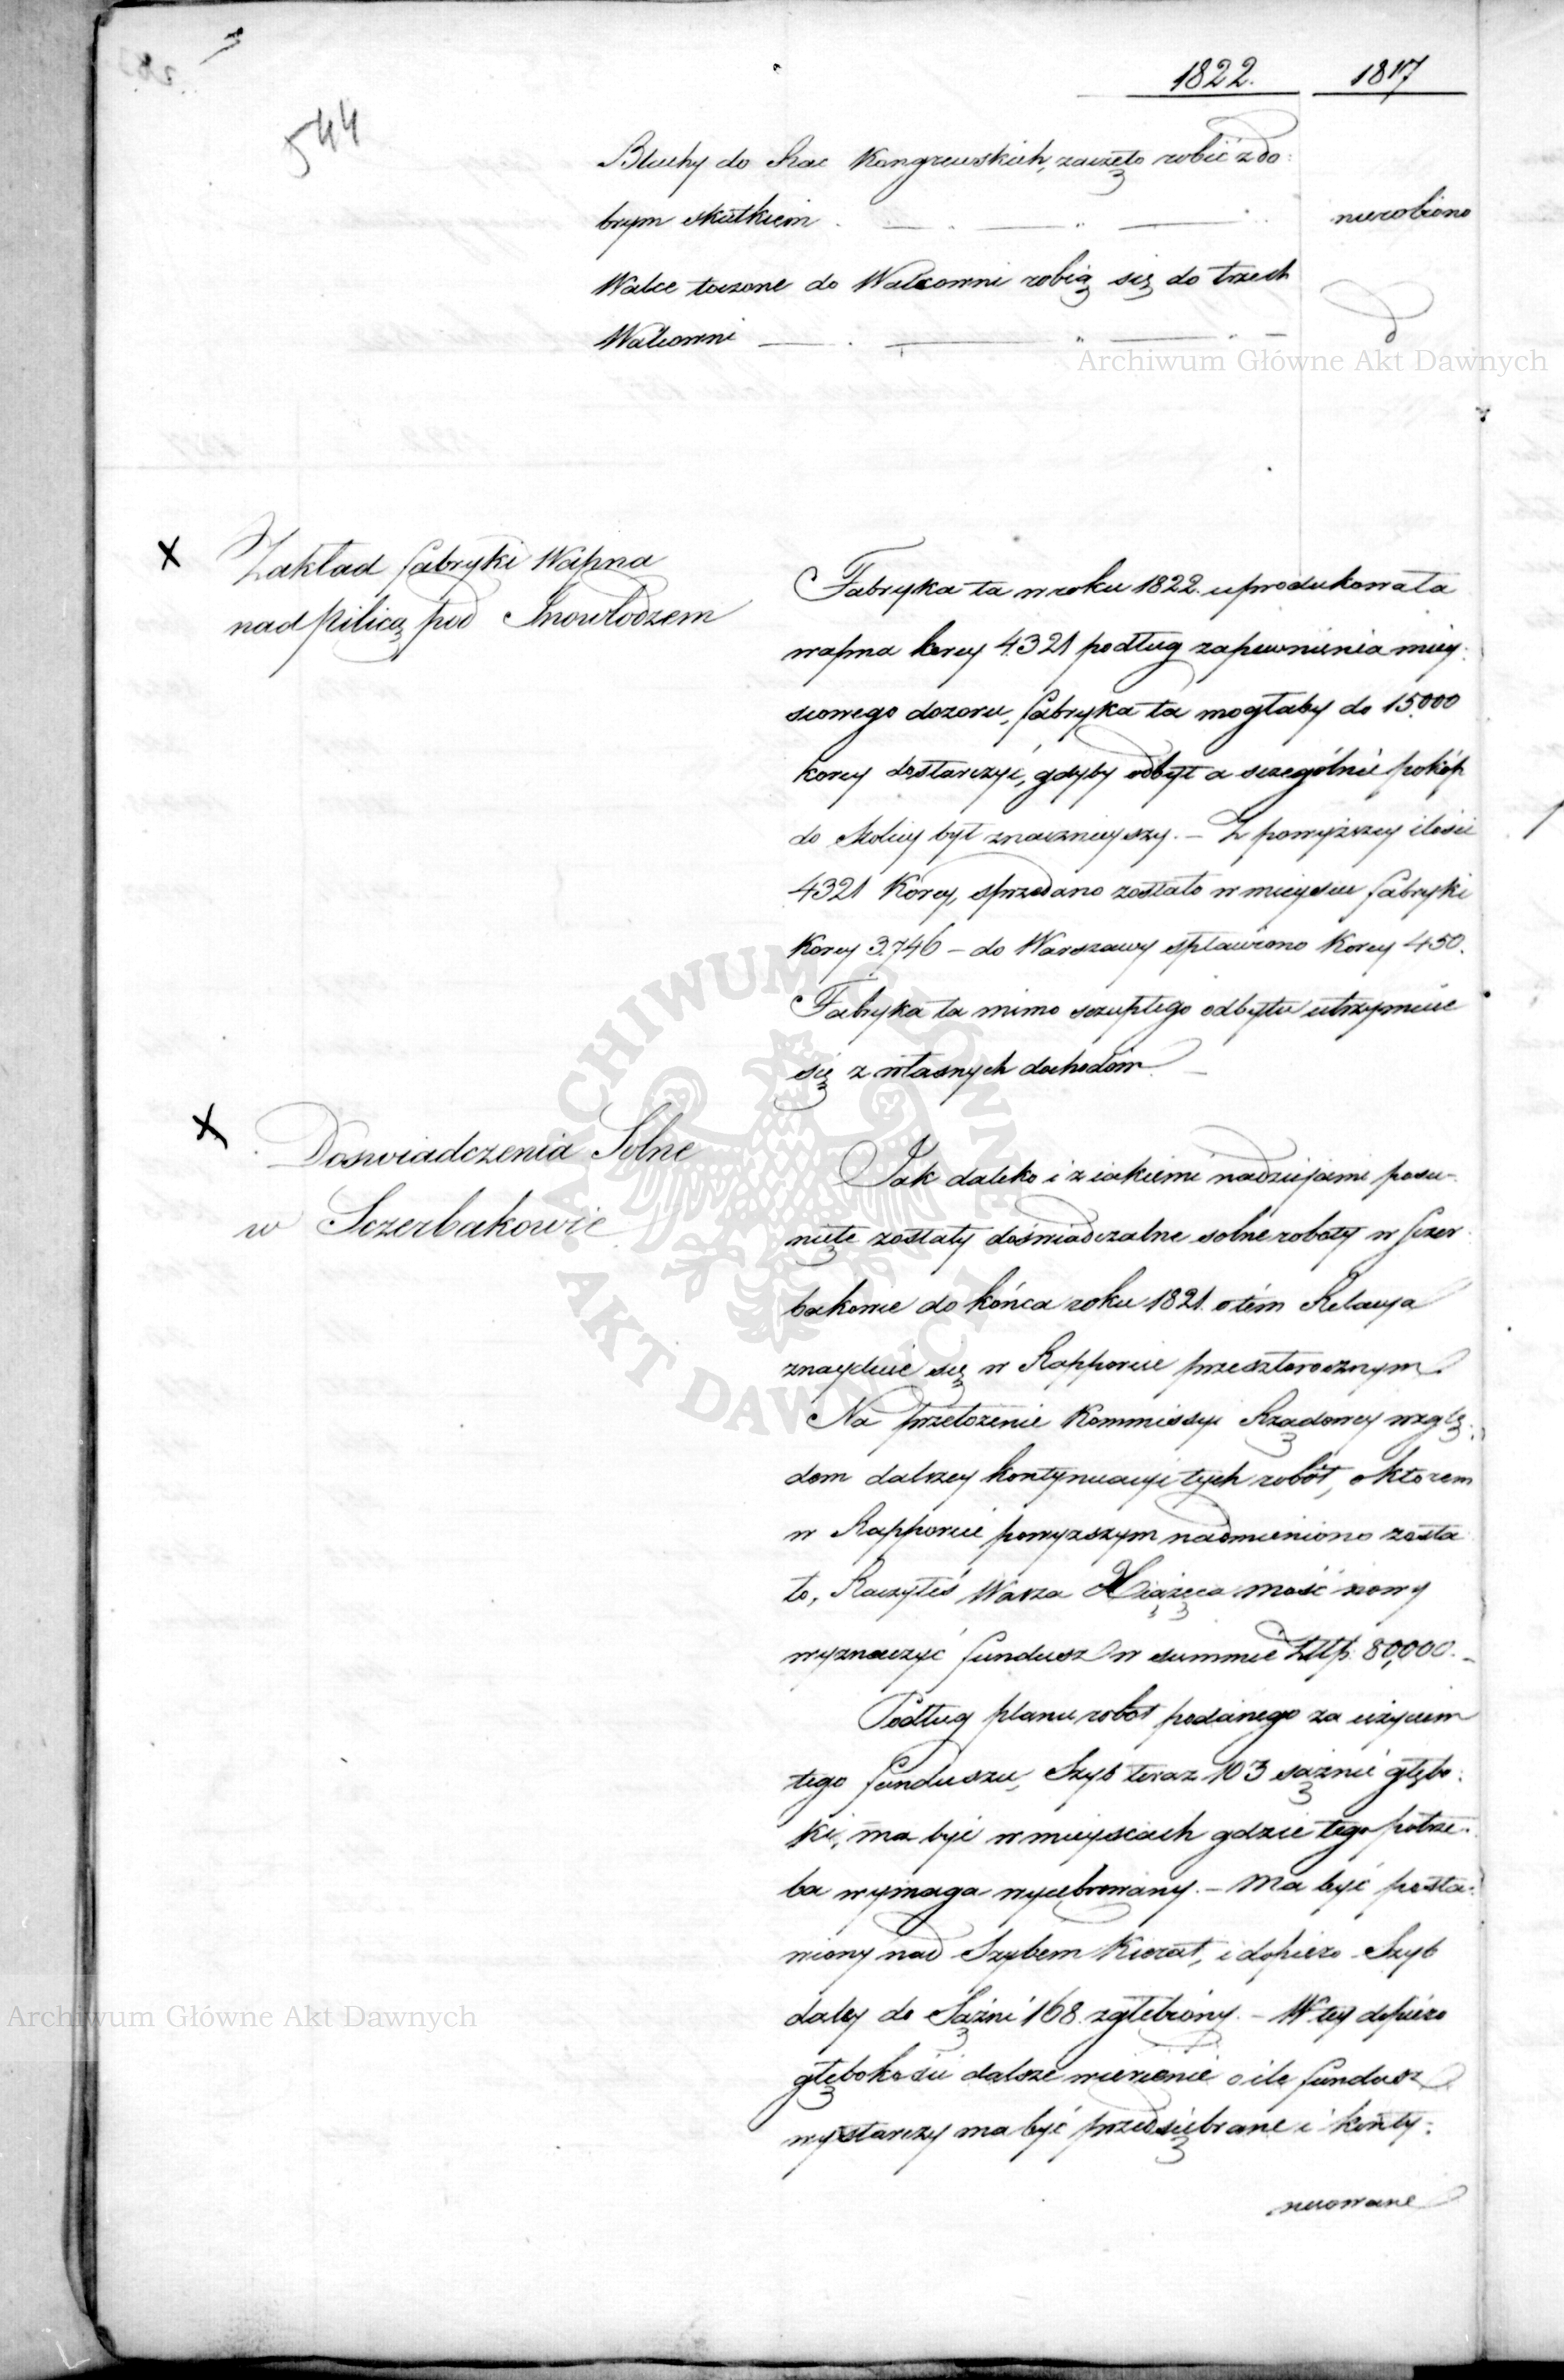 1822. 1817
544
Bluchy do Rac Kongrewskich, zaczęto robić z do:
brym skutkiem nierobiono
Walce toczone do Walcowni robią się do trzech
Walcowni d
Archiwum Główne Akt Dawnych
x Zakład fabryki Wapna
nad Pilicą pod Inowłodzem
Fabryka ta w roku 1822. uprodukowała
wapna korcy 4321 podług zapewnienia miey:
scowego dozoru, fabryka ta mogłaby do 15.000
korcy dostarczyć, gdyby odbyt a szczególnie pokóp
do Stolicy był znacznieyszy. – Z powyższey ilości
4321 Korcy, sprzedano zostało w mieyscu fabryki
Korcy 3746 – do Warszawy spławiono Korcy 450.
Fabryka ta mimo szczupłego odbytu utrzymuie
się z własnych dochodów. –
x Doswiadczenia Solne
w Sczerbakowie
Jak daleko i z iakiemi nadziejami posu-
nięte zostały doświadczalne solne roboty w Sczer
bakowie do końca roku 1821. o tém Relacya
znayduie się w Rapporcie przeszłorocznym
Na przełożenie Kommissyi Rządowey wzglę:
dem dalszey kontynuacyi tych robót, o ktorem
w Rapporcie powyzszym nadmieniono zosta
ło, Raczyłeś Wasza Xiążęca Mość nowy
wyznaczyć fundusz w summie Złłp. 80,000. –
Podług planu robót podanego za użyciem
tego funduszu, Szyb teraz 103 sążnie głębo:
ki, ma być w mieyscach gdzie tego potrze:
ba wymaga wycebrowany. – Ma być posta:
wiony nad Szybem Kierat, i dopiero Szyb
daley do Sążni 168 zgłębiony. – W tey dopiero
głębokości dalsze wiercenie o ile fundusz
wystarczy ma być przedsiębrane i konty:
nuowane
Archiwum Główne Akt Dawnych
ARCHIWUM GŁÓWNE AKT DAWNYCH